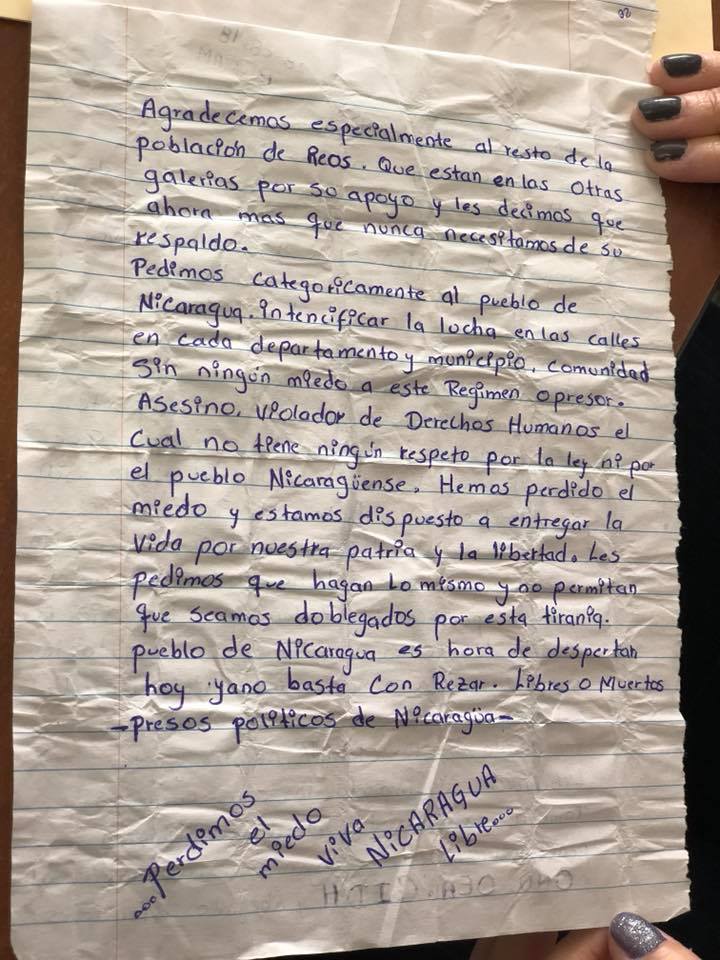 Agradecemos especialmente al resto de la
población de Reos. Que estan en las otras
galerias por so apoyo y les decimos que
ahora mas que nunca necesitamos de su
respaldo.
Pedimos categoricamente al pueblo de
Nicaragua. intencificar la locha en las calles
en cada departamento y municipio, comunidad
Sin ningún miedo a este Regimen opresor.
Asesino, violador de Derechos Humanos el
Cual no tiene ningún respeto por la ley ni por
el pueblo Nicaragüense. Hemos perdido el
miedo y estamos dispuesto a entregar la
vida por nuestra patria y la libertad. Les
pedimos que hagan lo mismo y no permitan
que seamos doblegados por esta tirania.
pueblo de Nicaragua es hora de despertar
hoy yano basta con Rezar. Libres o Muertos
-Presos politicos de Nicaragüa-
...Perdimos
el
miedo
viva
NiCARAGUA
Libre...